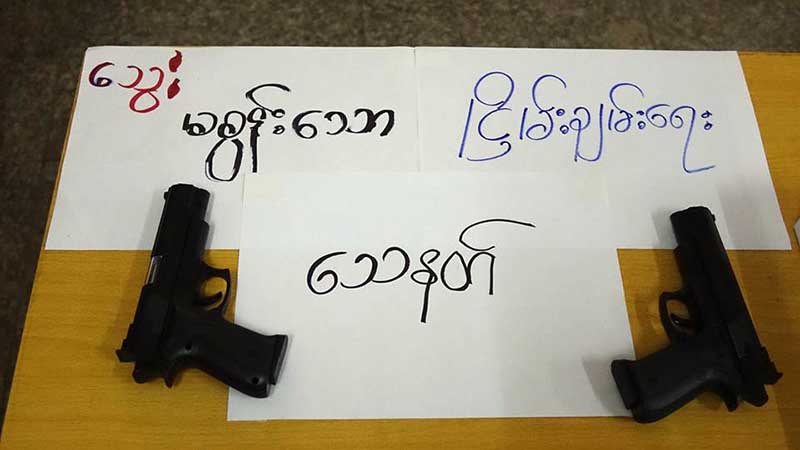 သွေး
မစွန်းသော
ငြိမ်းချမ်းရေး
သေနတ်